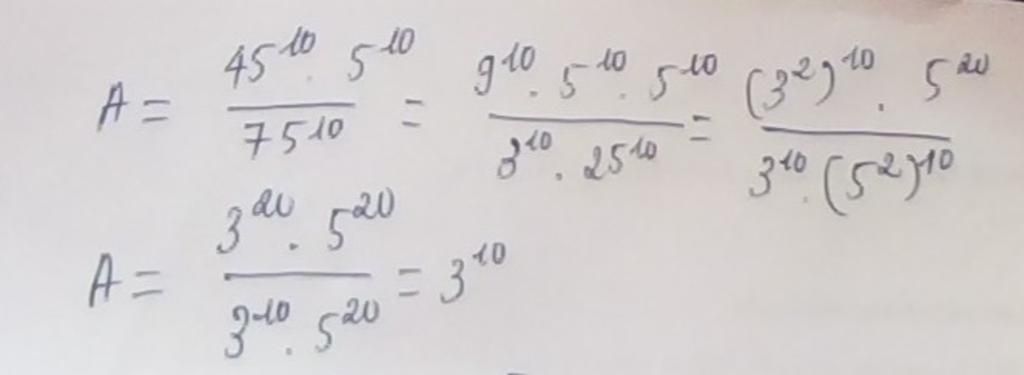 A = \frac{45^{10} \cdot 5^{10}}{75^{10}} = \frac{9^{10} \cdot 5^{10} \cdot 5^{10}}{3^{10} \cdot 25^{10}} = \frac{(3^2)^{10} \cdot 5^{20}}{3^{10} \cdot (5^2)^{10}}
A = \frac{3^{20} \cdot 5^{20}}{3^{10} \cdot 5^{20}} = 3^{10}